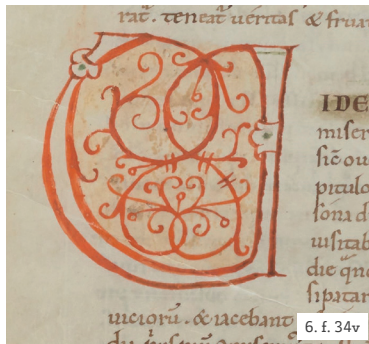 rat̄. teneat ueritas & frua
U
IDE
miser
sic̄ ou
pitulo
sona d
uisitab
die qn̄o
sipatar
uicioru̅. & iacebant
6. f. 34v